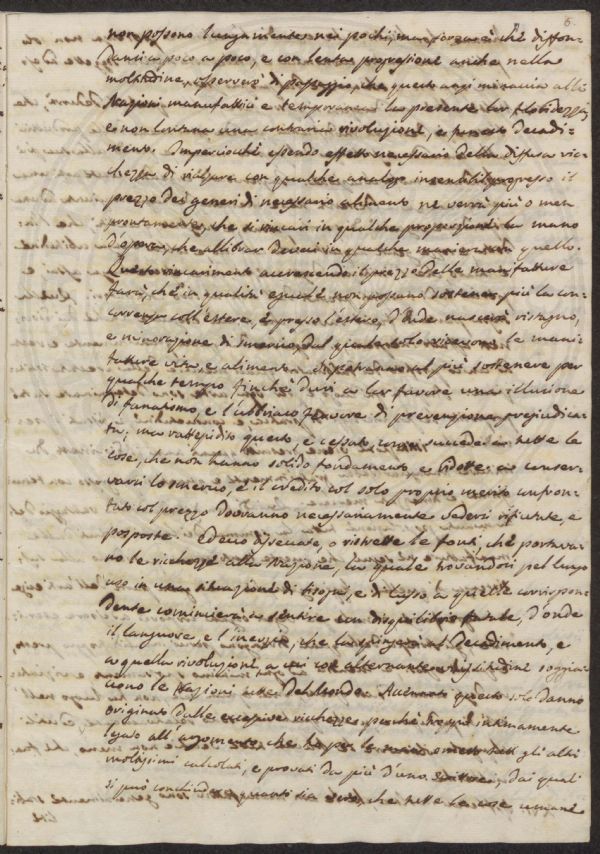 6.
non possono lungamente nei pochi, ma forza è che diffon-
dansi a poco a poco, e con lenta progressione anche nella
moltitudine, osserverò di passaggio, che questo anzi minaccia alle
Nazioni manufattrici e temporanea la presente lor floridezza,
e non lontana una contraria rivoluzione, e funesto decadi-
mento. Imperciochè essendo effetto necessario della diffusa ric-
chezza di rialzare con qualche analogo insensibil progresso il
prezzo dei generi di necessario alimento ne verrà più o men
prontamente, che si rincari in qualche proporzione la mano
d'opera, che allibrar devesi in qualche maniera con quello.
Questo rincarimento accrescendo il prezzo delle manifatture
farà, che in qualità eguale non possano sostener più la con-
correnza coll'estere, e presso l'estero, d'onde nascerà ristagno,
e minorazione di smercio, dal quale solo ricevono le mani-
fatture vita, e alimento. Si potranno al più sostenere per
qualche tempo finchè duri a lor favore una illusione
di fanatismo, e l'ubbriaco favore di prevenzione pregiudica-
ta; ma rattepidito questo, e cessato come succede in tutte le
cose, che non hanno solido fondamento, e ridotte a conser-
varsi lo smercio, e il credito col solo proprio merito confron-
tato col prezzo dovranno necessariamente vedersi rifiutate, e
posposte. Ed ecco disseccate, o ristrette le fonti, che portava-
no le ricchezze alla Nazione, la quale trovandosi pel lungo
uso in una situazione di bisogni, e di lusso a quelle corrispon-
dente comincierà a sentire con disequilibrio fatale, d'onde
il languore, e l'inerzia, che la spingerà al decadimento, e
a quella rivoluzione, a cui con alternante vicissitudine soggia-
ciono le Nazioni tutte del Mondo. Accennato questo solo danno
originato dalle eccessive ricchezze, perchè troppo intimamente
legato all'argomento che ho per le mani ometto gli altri
moltissimi calcolati, e provati da più d'uno scrittore, dai quali
si può conchiudere quanto sia vero, che tutte le cose umane